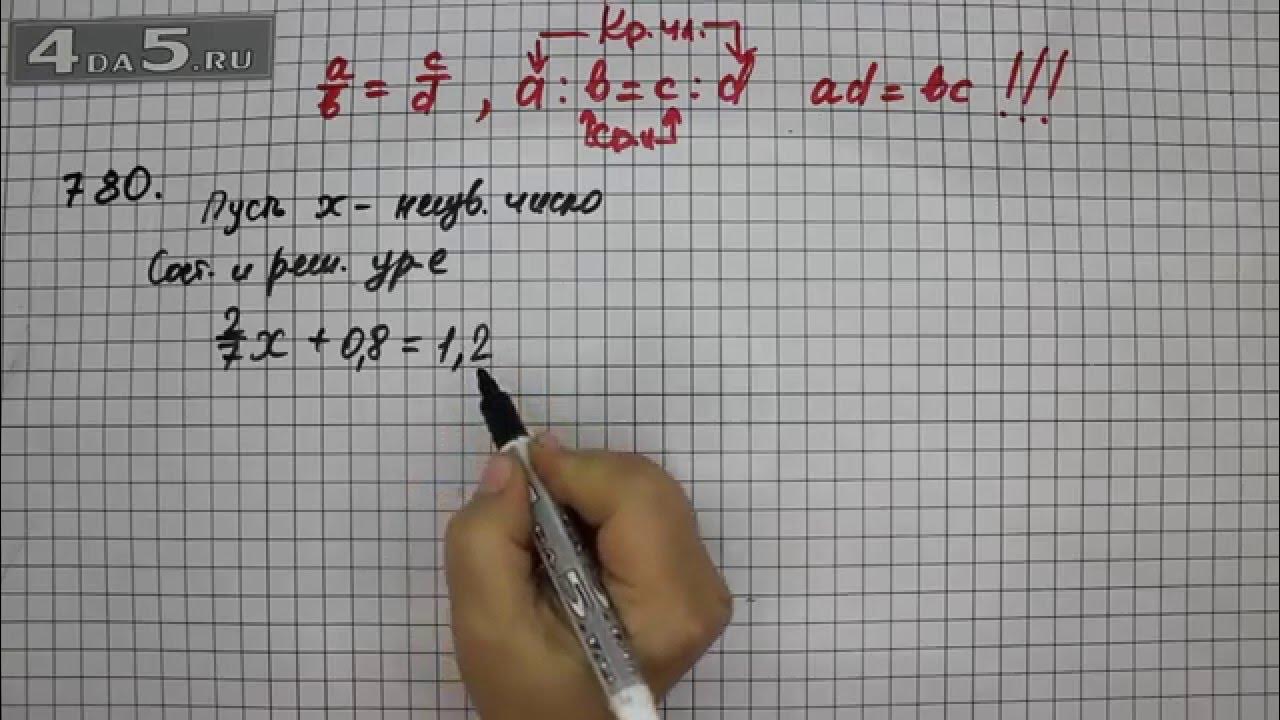 4DA5.RU
Кр.чл.
a/b = c/d , a : b = c : d ad = bc !!!
ср.чл.
780. Пусть x - неизв. число
Сост. и реш. ур-е
2/7 x + 0,8 = 1,2